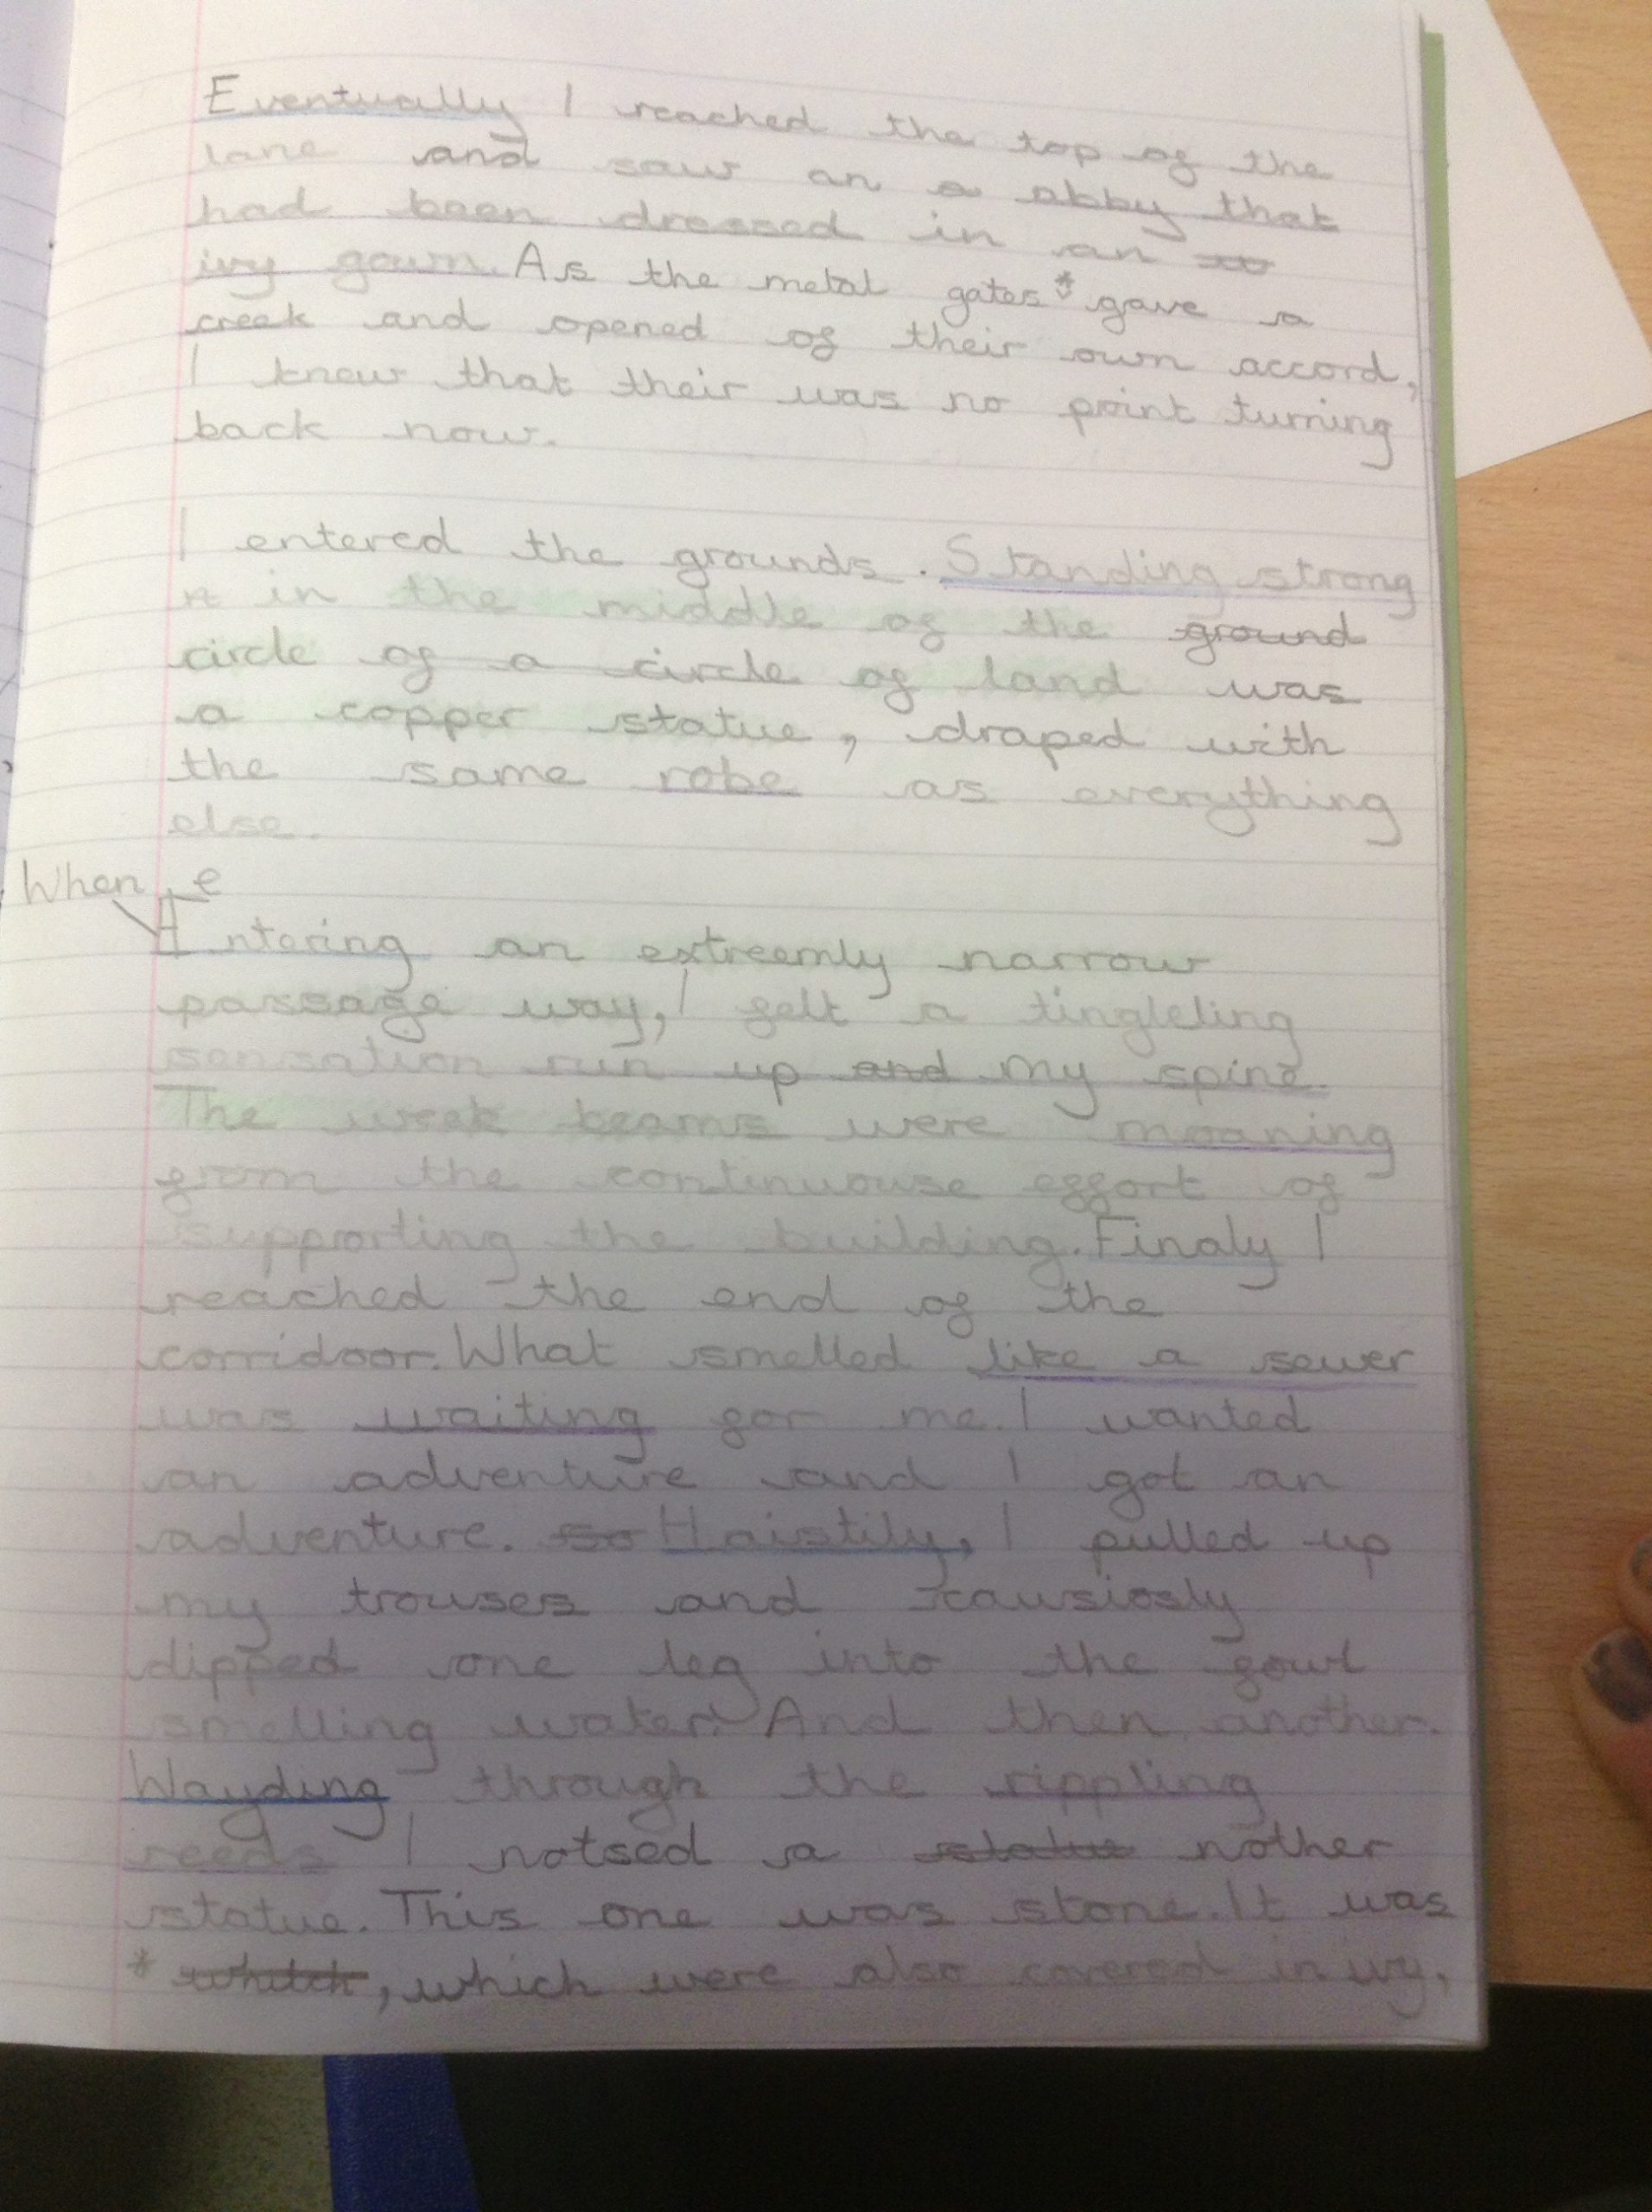 Eventually I reached the top of the
lane and saw an a abby that
had been dressed in an
ivy gown. As the metal gates* gave a
creek and opened of their own accord,
I knew that their was no point turning
back now.
I entered the grounds. Standing strong
in the middle of the ground
circle of a circle of land was
a copper statue, draped with
the same robe as everything
else.
When e
Entering an extreemly narrow
passage way, I felt a tingleling
sensation run up and my spine.
The week beams were moaning
from the continuouse effort of
supporting the building. Finaly I
reached the end of the
corridoor. What smelled like a sewer
was waiting for me. I wanted
an adventure and I got an
adventure. so Haistily, I pulled up
my trouses and causiosly
dipped one leg into the fowl
smelling water. And then another.
Wayding through the rippling
reeds I notsed a statue nother
statue. This one was stone. It was
* whitch, which were also covered in ivy,